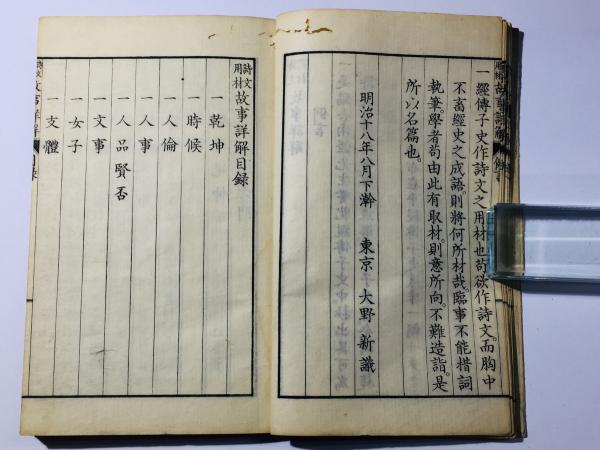 一經傳子史作詩文之用材也苟欲作詩文。而胸中
不畜經史之成語。則將何所材哉。臨事不能措詞
執筆學者苟由此有取材。則意所向。不難造詣。是
所以名篇也。
明治十八年八月下澣 東京 大野新識
詩文用材故事詳解目録
一乾坤
一時候
一人倫
一人事
一人品賢否
一文事
一女子
一支體